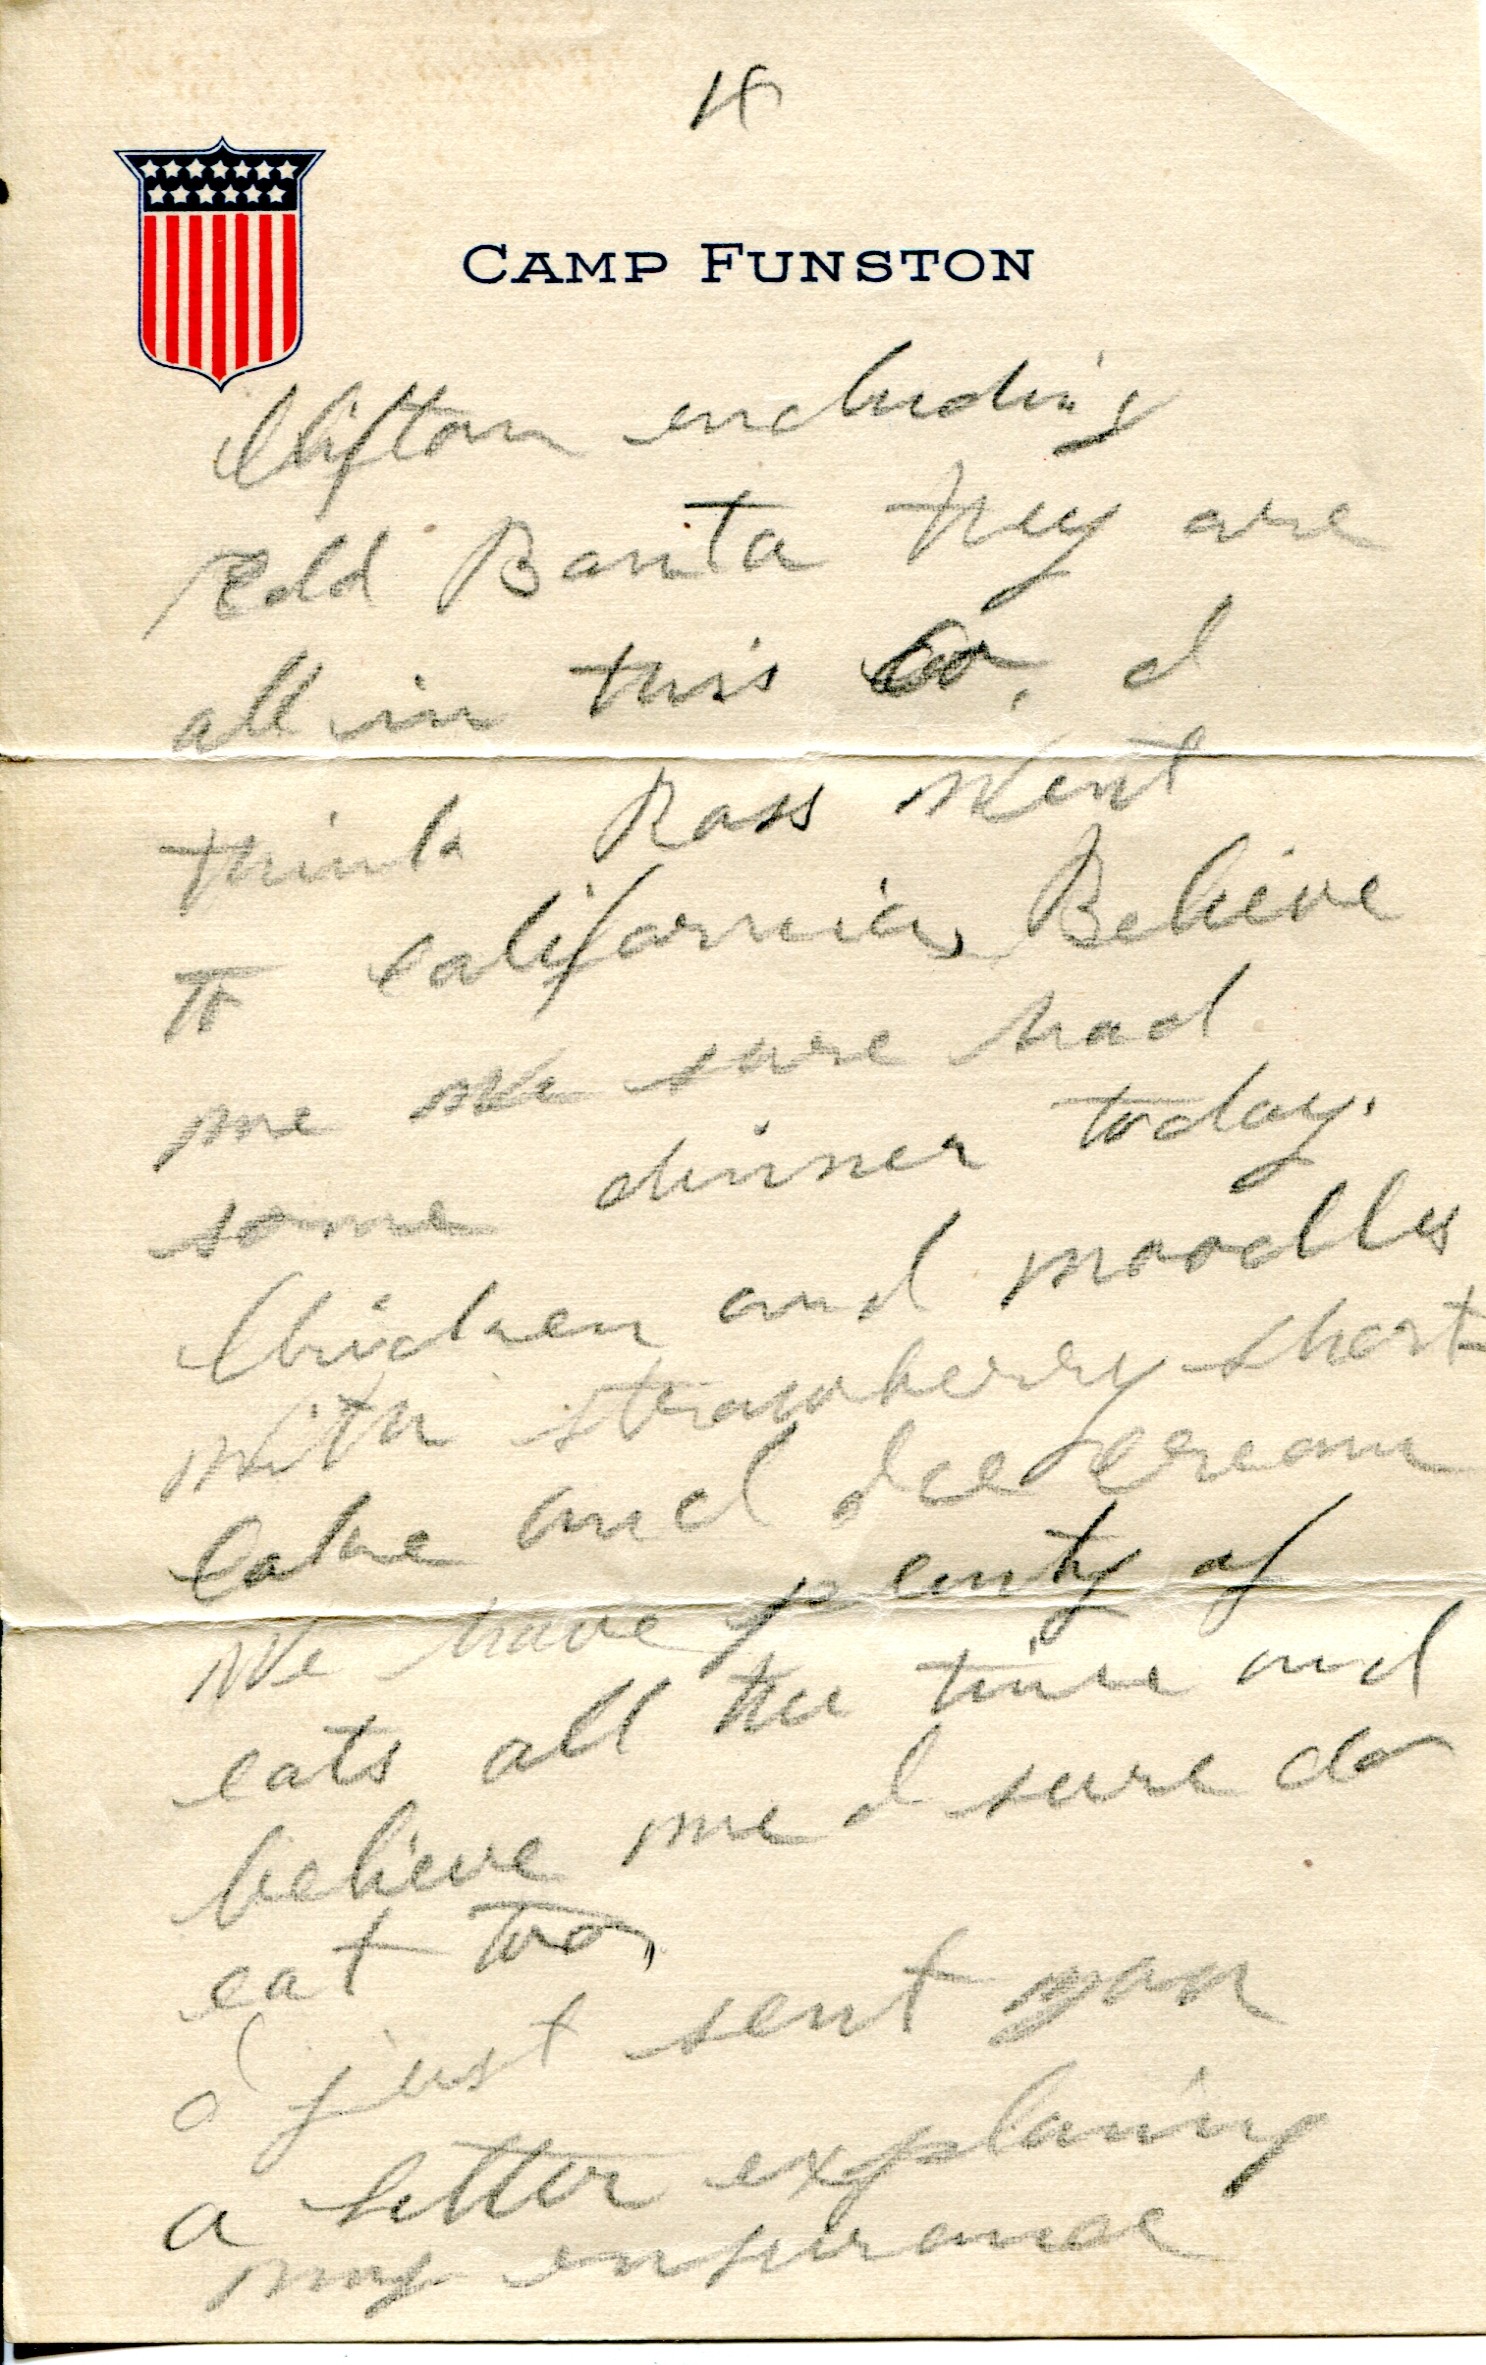 4
CAMP FUNSTON
Clifton including
Edd Banta they are
all in this Co, I
think Ross went
to California, Believe
me we sure had
some dinner today.
Chicken and noodles
with strawberry short
cake and Ice cream
We have plenty of
eats all the time and
believe me I sure do
eat too,
I just sent you
a letter explaing
my insurance